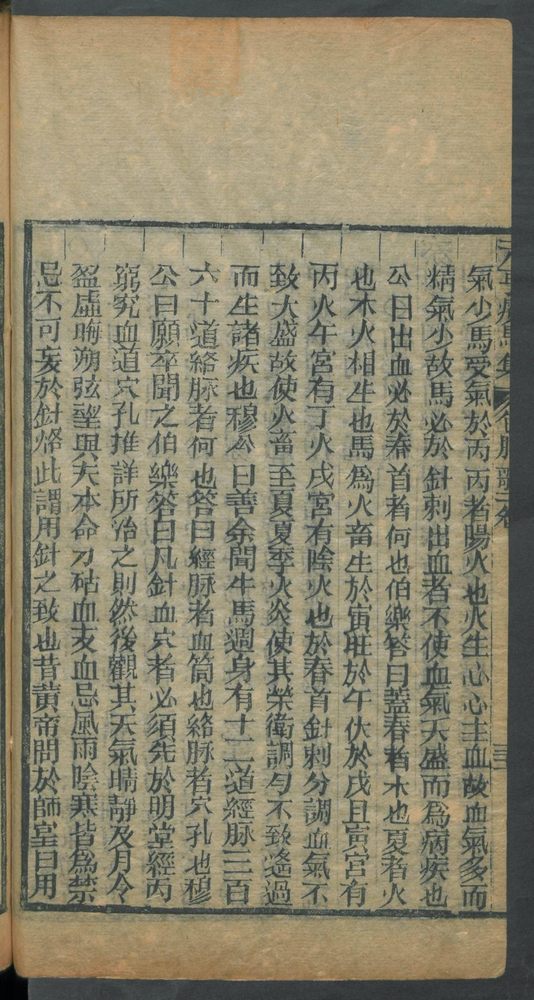 氣少馬受氣於丙丙者陽火也火生心心主血故血氣多而
精氣少故馬必於針刺出血者不使血氣大盛而爲病疾也
公曰出血必於春首者何也伯樂答曰蓋春者木也夏者火
也木火相生也馬爲火畜生於寅旺於午伏於戌且寅宮有
丙火午宮有丁火戌宮有陰火也於春首針刺分調血氣不
致大盛故使火畜至夏夏季火炎使其榮衛調勻不致遙過
而生諸疾也穆公曰善余聞牛馬週身有十二道經脉三百
六十道絡脉者何也答曰經脉者血筒也絡脉者穴孔也穆
公曰願卒聞之伯樂答曰凡針血穴者必須先於明堂經內
窮究血道穴孔推詳所治之則然後觀其天氣晴靜及月令
盈虛晦朔弦望與夫本命刀砧血支血忌風雨陰寒皆爲禁
忌不可妄於針烙此謂用針之致也昔黃帝問於師皇曰用